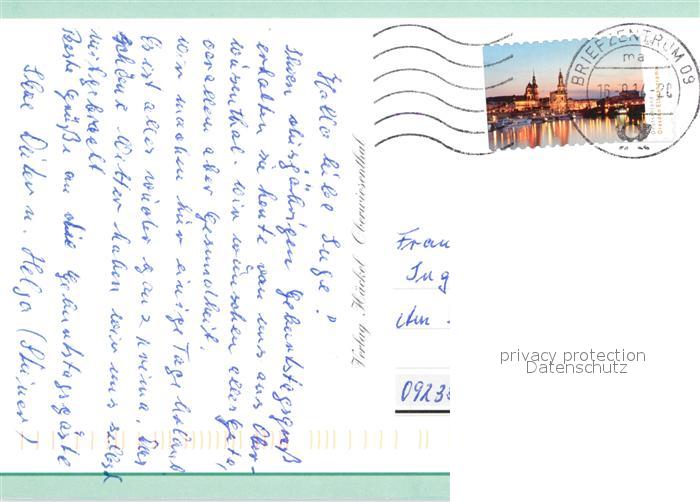 Hallo liebe Inge!
Ihren diesjährigen Geburtstagsgruß
erhalten sie heute von uns aus Ober-
wiesenthal. Wir wünschen alles Gute,
vor allem aber Gesundheit.
Wir machen hier einige Tage Urlaub
Es ist alles wieder ganz prima, das
schöne Wetter haben wir uns selbst
mitgebracht
Beste Grüße an die Geburtstagsgäste
Ihre Dieter u. Helga (Steiner)
Verlag Klinkel Oberwiesenthal
BRIEFZENTRUM 09
ma
Frau
Ing
Am
0923
privacy protection
Datenschutz